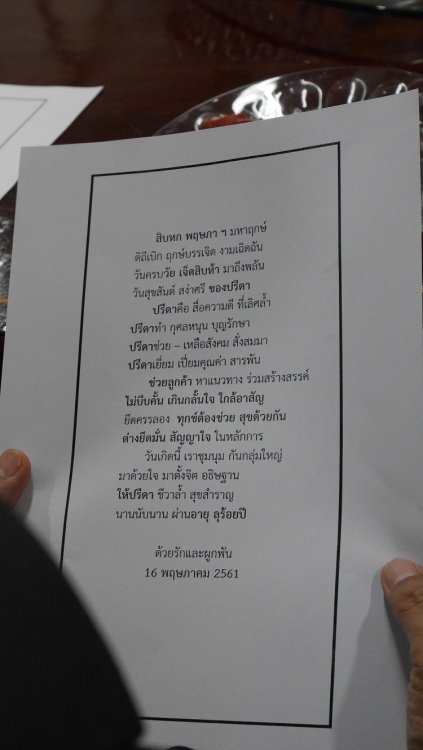 สิบหก พฤษภา ฯ มหาฤกษ์
ดิถีเบิก ฤกษ์บรรเจิด งามเฉิดฉัน
วันครบวัย เจ็ดสิบห้า มาถึงพลัน
วันสุขสันต์ สง่าศรี ของปรีดา
ปรีดาคือ สื่อความดี ที่เลิศล้ำ
ปรีดาทำ กุศลหนุน บุญรักษา
ปรีดาช่วย – เหลือสังคม สั่งสมมา
ปรีดาเยี่ยม เปี่ยมคุณค่า สารพัน
ช่วยลูกค้า หาแนวทาง ร่วมสร้างสรรค์
ไม่บีบคั้น เกินกลั้นใจ ใกล้อาสัญ
ยึดครรลอง ทุกข์ต้องช่วย สุขด้วยกัน
ต่างยึดมั่น สัญญาใจ ในหลักการ
วันเกิดนี้ เราชุมนุม กันกลุ่มใหญ่
มาด้วยใจ มาตั้งจิต อธิษฐาน
ให้ปรีดา ชีวาล้ำ สุขสำราญ
นานนับนาน ผ่านอายุ ลุร้อยปี
ด้วยรักและผูกพัน
16 พฤษภาคม 2561